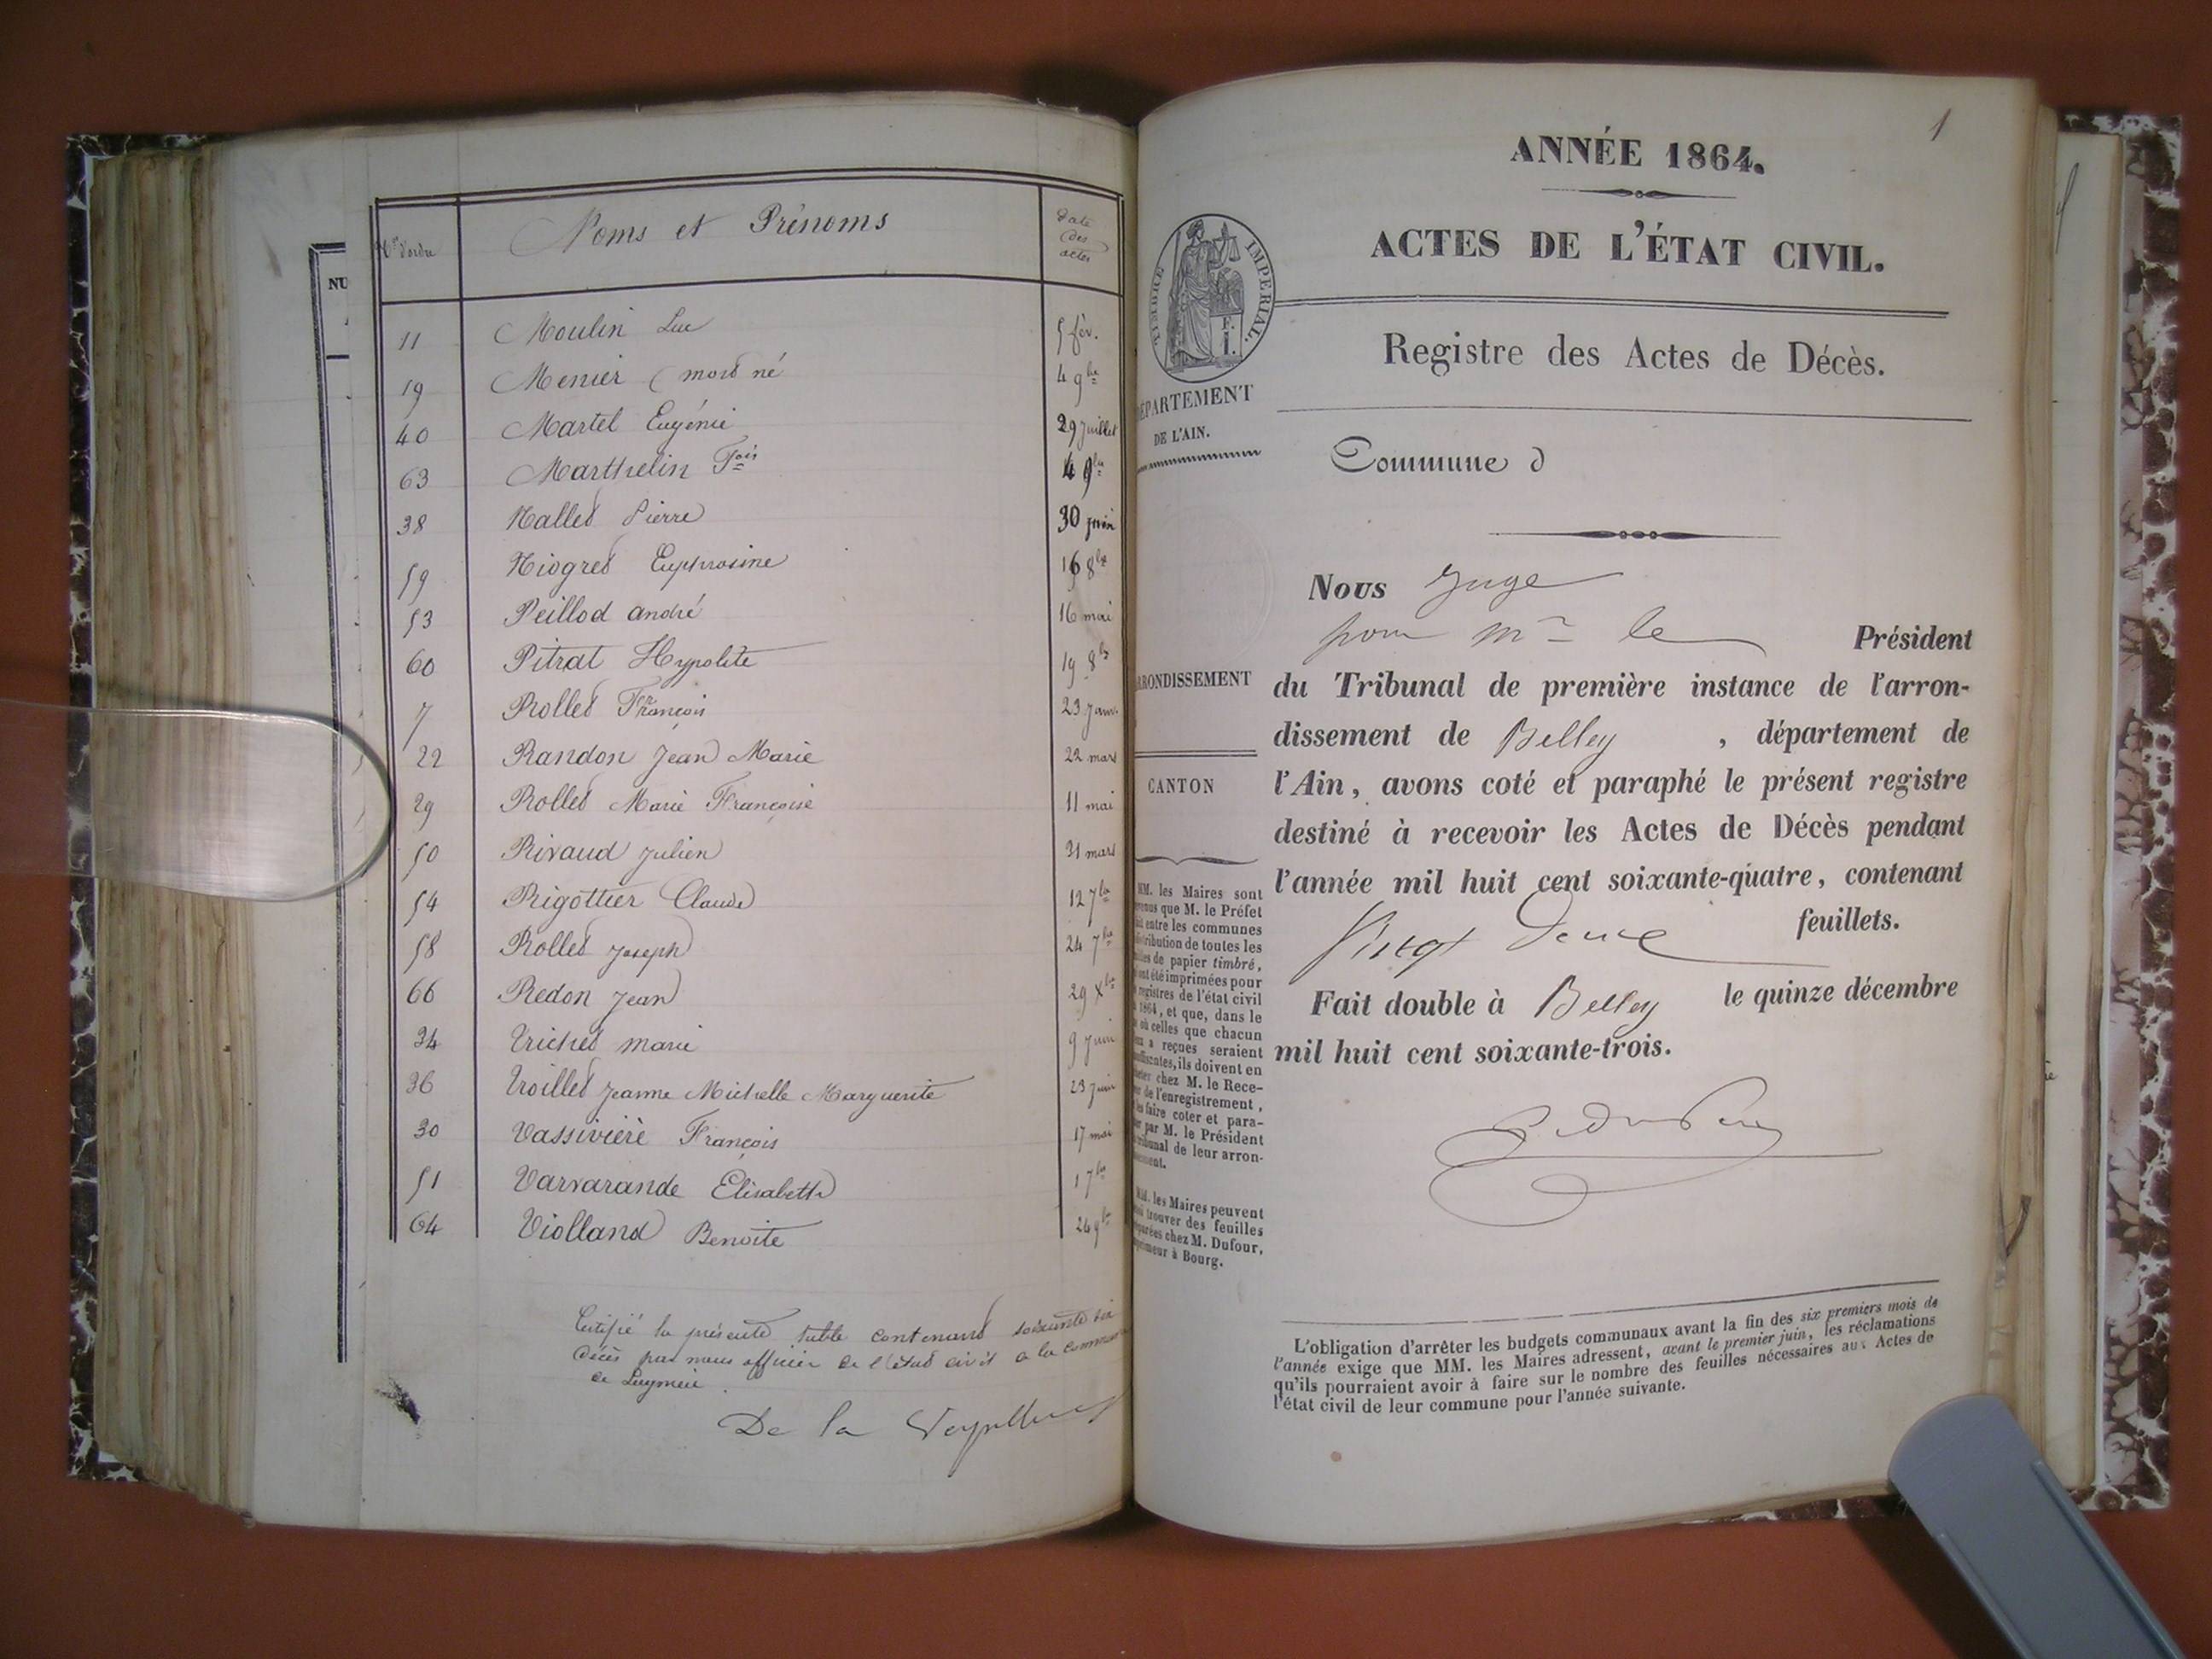 NU
Nos d'ordre Noms et Prénoms Date des actes
11 Moulin Luc 5 fév.
19 Menier (mort né 4 9bre
40 Martel Eugénie 29 juillet
63 Marthelin Fois 4 9bre
38 Nallet Pierre 30 juin
59 Niogret Euphrosine 16 8bre
53 Peillod andré 16 mai
60 Pitrat Hypolite 19 8bre
7 Rollet François 23 janv.
22 Randon Jean Marie 22 mars
29 Rollet Marie Françoise 11 mai
50 Rivaud Julien 31 mars
54 Rigottier Claude 12 7bre
58 Rollet Joseph 24 7bre
66 Redon Jean 29 Xbre
34 Trichet marie 9 Juin
36 Troillet Jeanne Michelle Marguerite 23 Juin
30 Vassivière François 17 mai
51 Varvarande Élisabeth 1 7bre
64 Violland Benoite 24 9bre
Certifié la présente table contenant soixante six
décès par nous officier de l'état civil de la commune
de Leyment.
De la
1
ANNÉE 1864.
ACTES DE L'ÉTAT CIVIL.
TIMBRE IMPÉRIAL.
F.
I.
Registre des Actes de Décès.
DÉPARTEMENT
DE L'AIN.
Commune d
Nous Juge
pour Mr le Président
ARRONDISSEMENT
du Tribunal de première instance de l'arron-
dissement de Belley , département de
CANTON
l'Ain, avons coté et paraphé le présent registre
destiné à recevoir les Actes de Décès pendant
l'année mil huit cent soixante-quatre, contenant
Vingt Deux feuillets.
Fait double à Belley le quinze décembre
mil huit cent soixante-trois.
MM. les Maires sont
que M. le Préfet
entre les communes
de toutes les
de papier timbré,
été imprimées pour
registres de l'état civil
1864, et que, dans le
où celles que chacun
a reçues seraient
ils doivent en
chez M. le Rece-
de l'enregistrement,
les faire coter et para-
par M. le Président
de leur arron-
MM. les Maires peuvent
trouver des feuilles
chez M. Dufour,
à Bourg.
L'obligation d'arrêter les budgets communaux avant la fin des six premiers mois de
l'année exige que MM. les Maires adressent, avant le premier juin, les réclamations
qu'ils pourraient avoir à faire sur le nombre des feuilles nécessaires aux Actes de
l'état civil de leur commune pour l'année suivante.